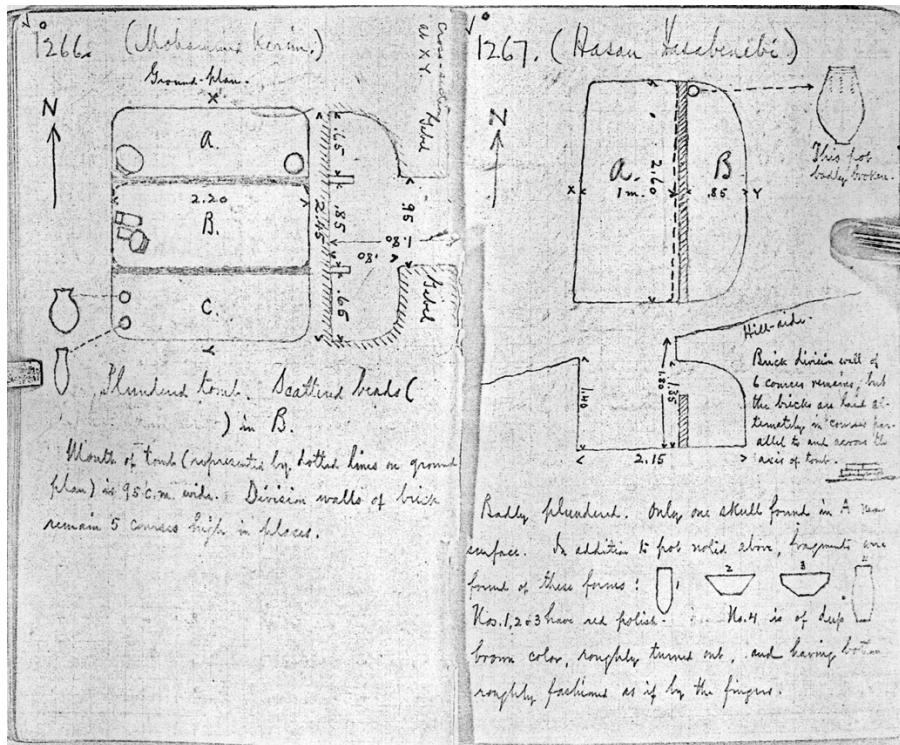 No
1266. (Mohammed Kerim.)
Ground-plan.
X
N
A.
2.20
B.
C.
Y
Cross-section
at XY.
Gebel
.65
.85
2.45
.66
.95
1.80
.80
Gebel
Plundered tomb. Scattered beads (
) in B.
Mouth of tomb (represented by dotted lines on ground
plan) is 95 c.m. wide. Division walls of brick
remain 5 courses high in places.
No
1267. (Hasan
N
A.
1 m.
2.60
B
.85
X
Y
This pot
badly broken.
Hill-side.
1.40
1.80
1.35
2.15
Brick division wall of
6 courses remains, but
the bricks are laid al-
ternately in courses par-
allel to and across the
axis of tomb.
Badly plundered. Only one skull found in A near
surface. In addition to pot noted above, fragments were
found of these forms: 1 2 3 4
Nos. 1, 2 & 3 have red polish. No. 4 is of deep
brown color, roughly turned out, and having bottom
roughly fashioned as if by the fingers.